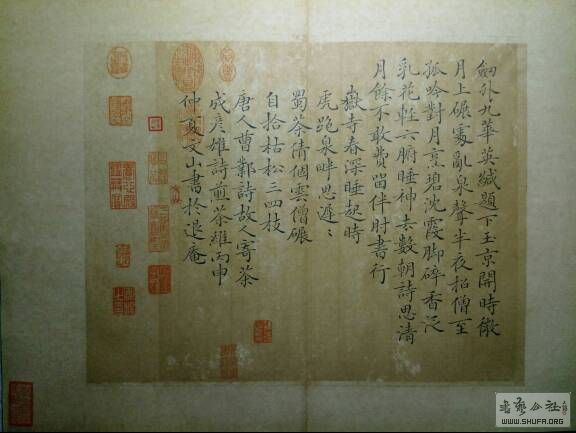 釼外九華英緘題下玉京開時微
月上碾處亂泉聲半夜招僧至
孤吟對月烹碧沈霞脚碎香泛
乳花輕六腑睡神去數朝詩思清
月餘不敢費留伴肘書行
嶽寺春深睡起時
虎跑泉畔思遲〻
蜀茶倩個雲僧碾
自拾枯松三四枝
唐人曹鄴詩故人寄茶
成彥雄詩煎茶維丙申
仲夏文山書於退庵
書藝公社
WWW.SHUFA.ORG